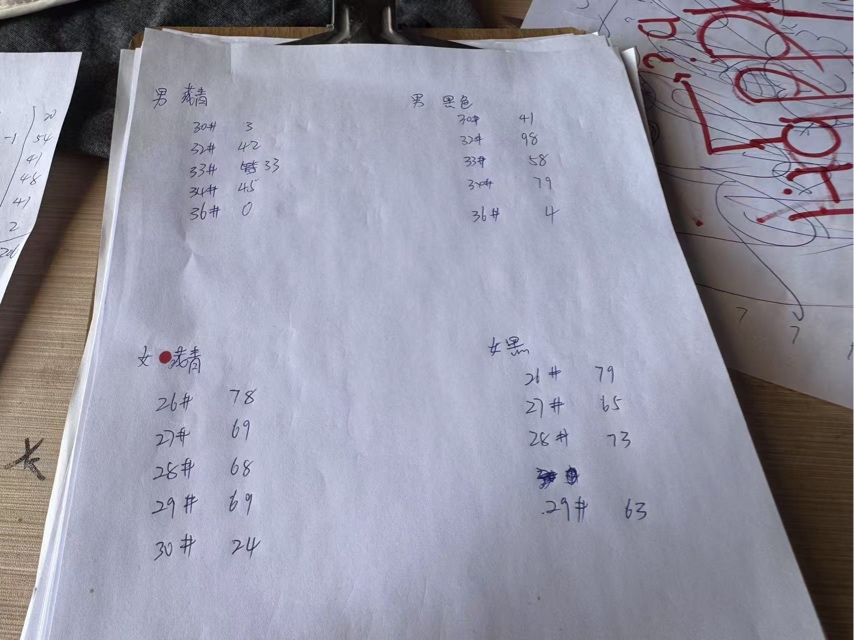 男 藏青
30# 3
32# 42
33# 33
34# 45
36# 0
男 黑色
30# 41
32# 98
33# 58
34# 79
36# 4
女 藏青
26# 78
27# 69
28# 68
29# 69
30# 24
女黑
26# 79
27# 65
28# 73
29# 63
20
-1 54
41
48
41
2
7
7